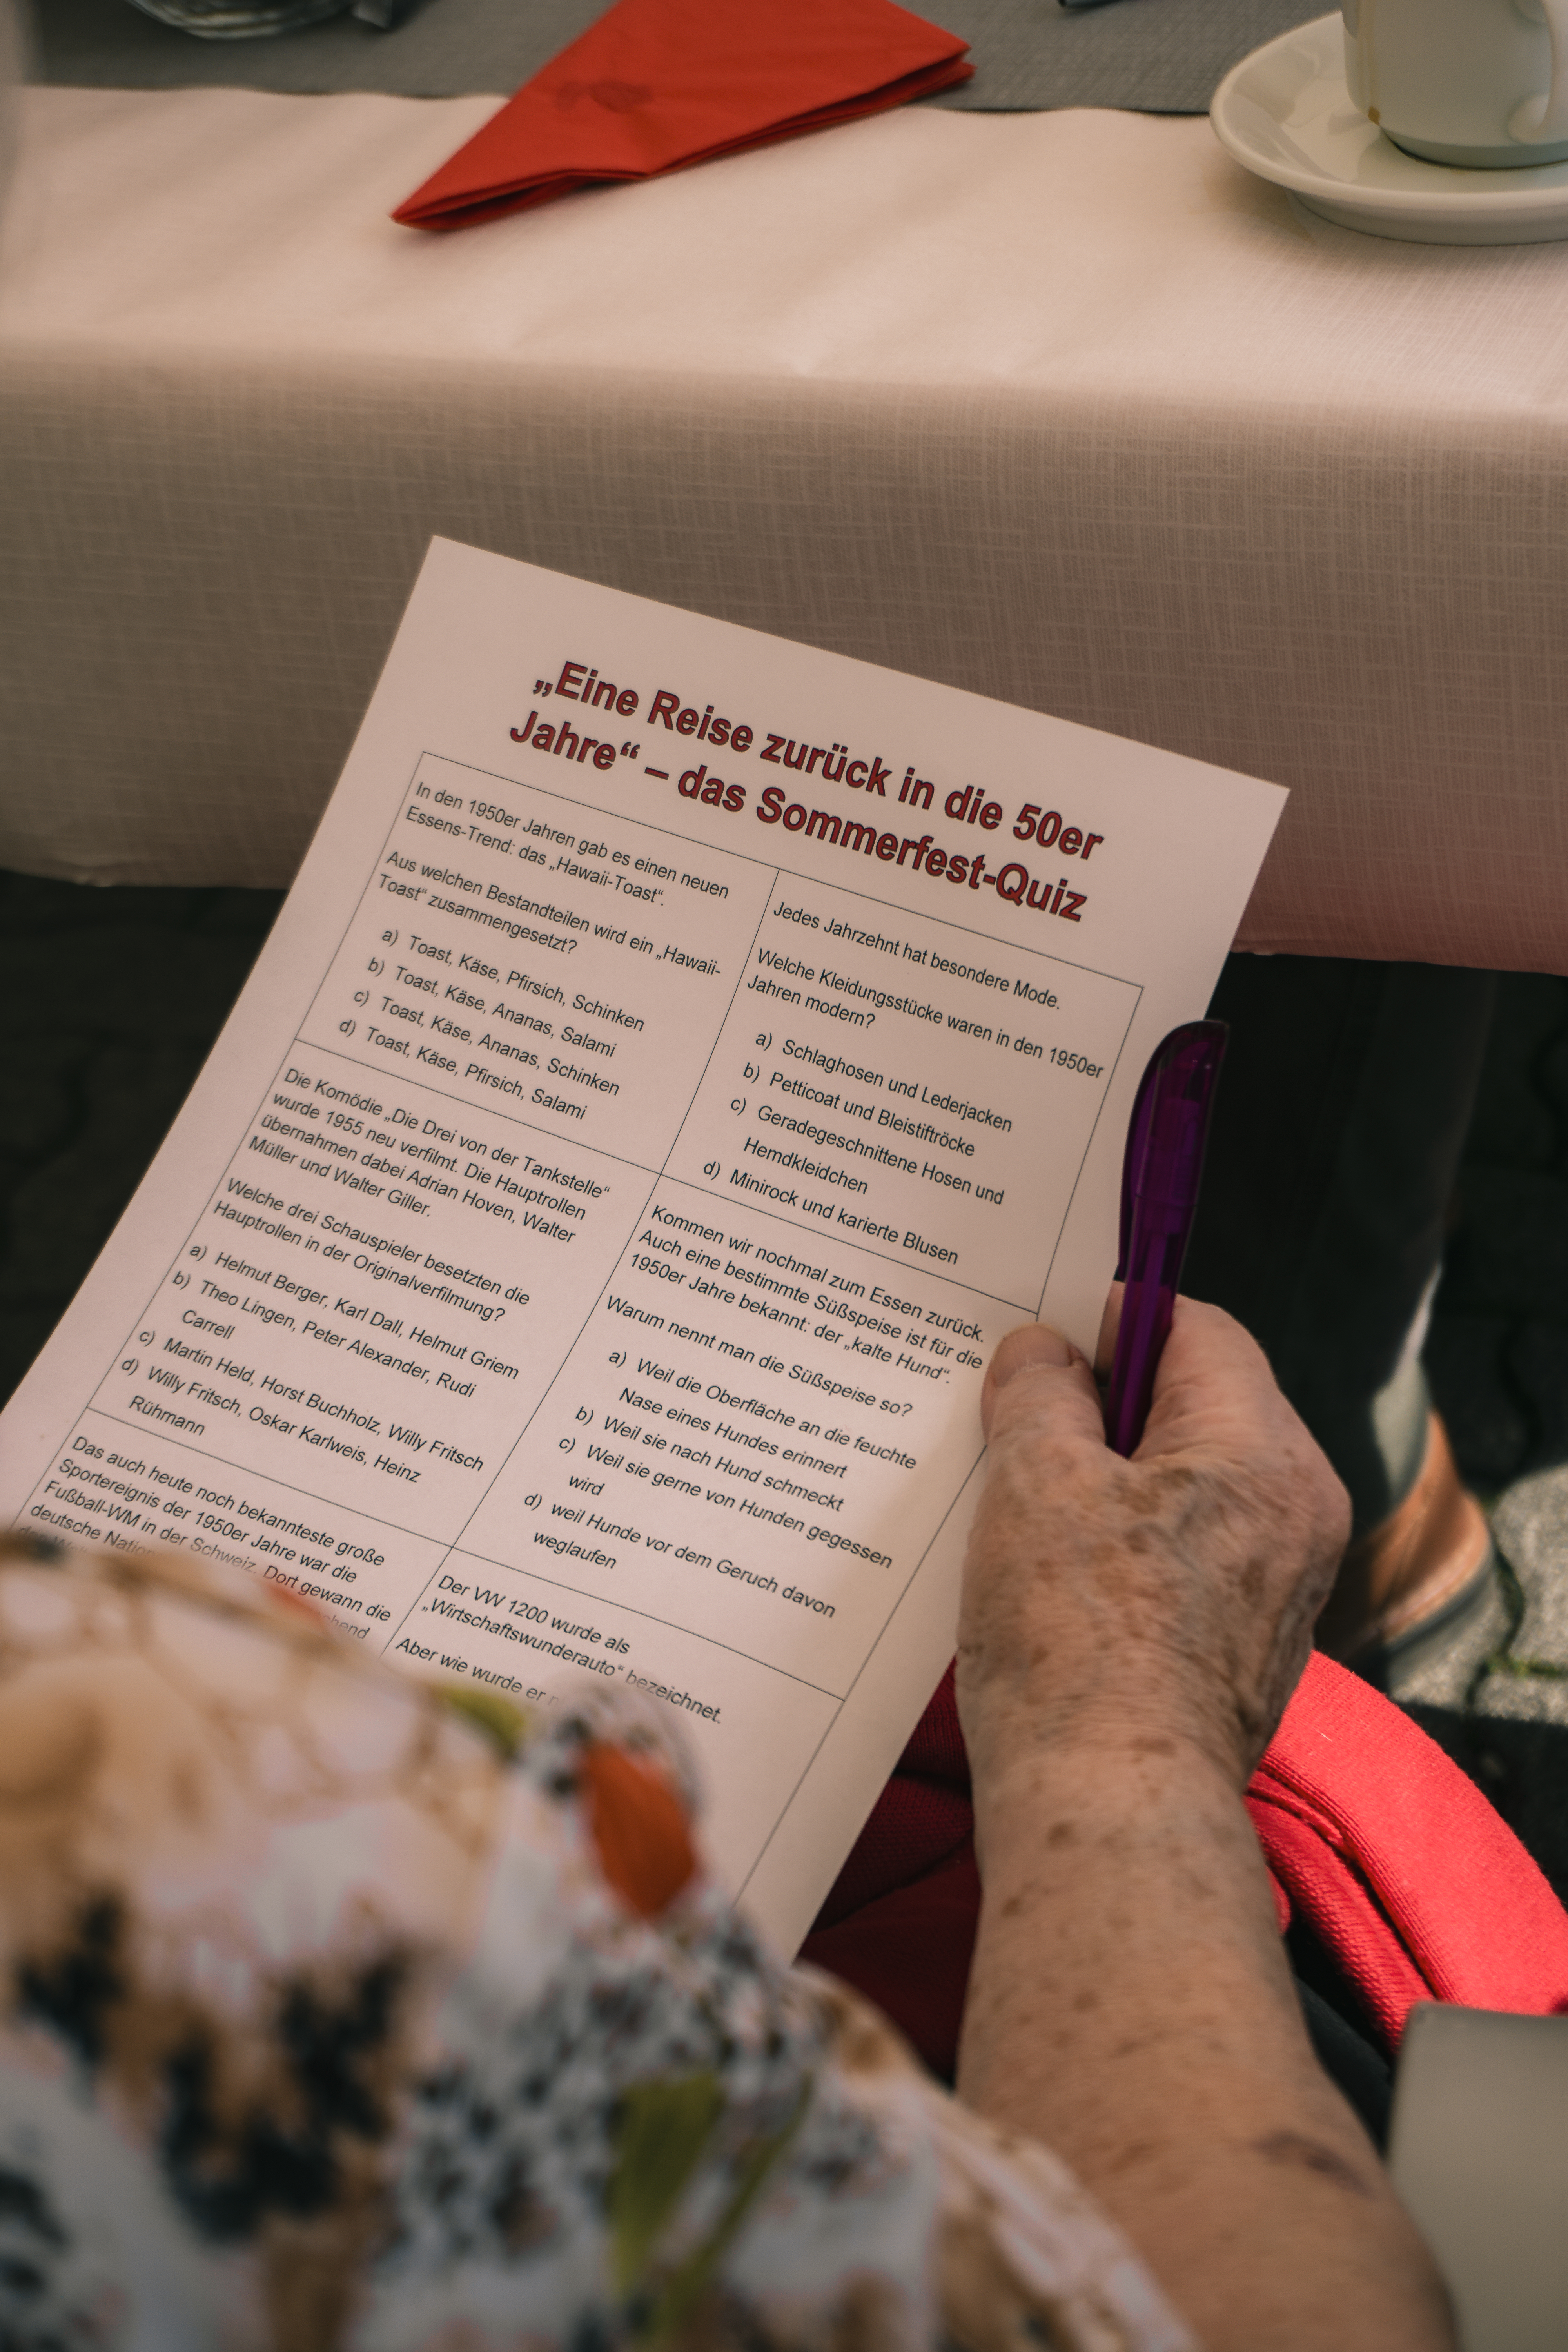 „Eine Reise zurück in die 50er
Jahre“ – das Sommerfest-Quiz
In den 1950er Jahren gab es einen neuen
Essens-Trend: das „Hawaii-Toast“.
Aus welchen Bestandteilen wird ein „Hawaii-
Toast“ zusammengesetzt?
a) Toast, Käse, Pfirsich, Schinken
b) Toast, Käse, Ananas, Salami
c) Toast, Käse, Ananas, Schinken
d) Toast, Käse, Pfirsich, Salami
Jedes Jahrzehnt hat besondere Mode.
Welche Kleidungsstücke waren in den 1950er
Jahren modern?
a) Schlaghosen und Lederjacken
b) Petticoat und Bleistiftröcke
c) Geradegeschnittene Hosen und
Hemdkleidchen
d) Minirock und karierte Blusen
Die Komödie „Die Drei von der Tankstelle“
wurde 1955 neu verfilmt. Die Hauptrollen
übernahmen dabei Adrian Hoven, Walter
Müller und Walter Giller.
Welche drei Schauspieler besetzten die
Hauptrollen in der Originalverfilmung?
a) Helmut Berger, Karl Dall, Helmut Griem
b) Theo Lingen, Peter Alexander, Rudi
Carrell
c) Martin Held, Horst Buchholz, Willy Fritsch
d) Willy Fritsch, Oskar Karlweis, Heinz
Rühmann
Kommen wir nochmal zum Essen zurück.
Auch eine bestimmte Süßspeise ist für die
1950er Jahre bekannt: der „kalte Hund“.
Warum nennt man die Süßspeise so?
a) Weil die Oberfläche an die feuchte
Nase eines Hundes erinnert
b) Weil sie nach Hund schmeckt
c) Weil sie gerne von Hunden gegessen
wird
d) weil Hunde vor dem Geruch davon
weglaufen
Das auch heute noch bekannteste große
Sportereignis der 1950er Jahre war die
Fußball-WM in der Schweiz. Dort gewann die
deutsche
Der VW 1200 wurde als
„Wirtschaftswunderauto“ bezeichnet.
Aber wie wurde er